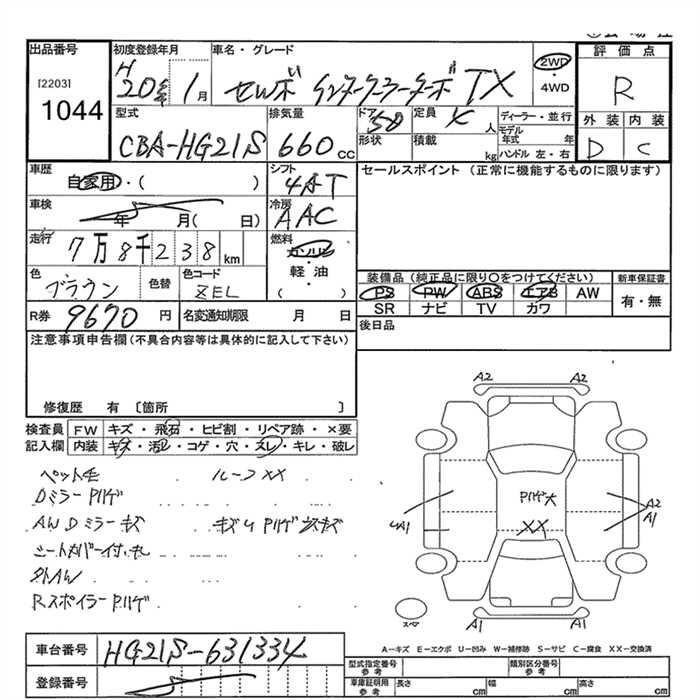 出品番号 初度登録年月 車名・グレード 評価点
[2203] 1044
H20年 1月
セルボ インタークーラーターボ TX
2WD ・ 4WD
R
型式 CBA-HG21S
排気量 660 cc
ドア 5D
形状
定員 4 人
積載 kg
ディーラー・並行
モデル年式 年
ハンドル 左・右
外装 内装
D C
車歴 自家用・( )
シフト 4AT
セールスポイント (正常に機能するものに限ります)
車検 年 月( 日)
冷房 AAC
走行 7万8千238 km
燃料 ガソリン ・ 軽油 ( )
色 ブラウン 色替
色コード ZEL
装備品 (純正品に限り○をつけてください) 新車保証書
PS PW ABS エアB AW
SR ナビ TV カワ
有・無
R券 9670 円 名変通知期限 月 日
後日品
注意事項申告欄(不具合内容等は具体的に記入して下さい)
修復歴 有 〔箇所 〕
検査員 FW キズ・飛石・ヒビ割・リペア跡・×要
記入欄 内装 キズ・汚レ・コゲ・穴・スレ・キレ・破レ
ペット毛 ルーフXX
Dミラー ハゲ
AW Dミラーキズ
シートカバー付
社外AW
Rスポイラー ハゲ
A2 A2
ハゲ大
XX
4A1
A2
A1
スペア
A1 A1
A-キズ E-エクボ U-凹み W-補修跡 S-サビ C-腐食 XX-交換済
車台番号 HG21S-631334
登録番号
型式指定番号 参考
類別区分番号 参考
車庫証明用 参考 長さ cm 幅 cm 高さ cm